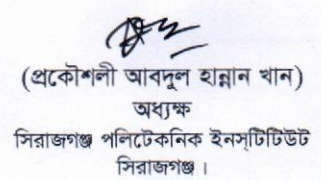 (প্রকৌশলী আবদুল হান্নান খান)
অধ্যক্ষ
সিরাজগঞ্জ পলিটেকনিক ইনস্‌টিটিউট
সিরাজগঞ্জ।